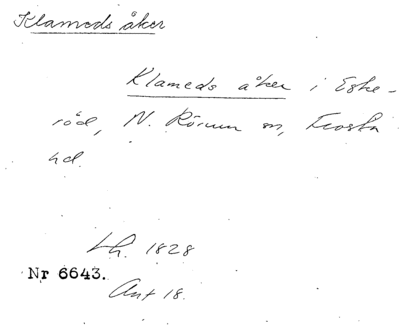 Klameds åker
Klameds åker i Eske-
röd, N. Rörum sn, Frosta
hd.
Lh. 1828
Nr 6643.
Ant 18.